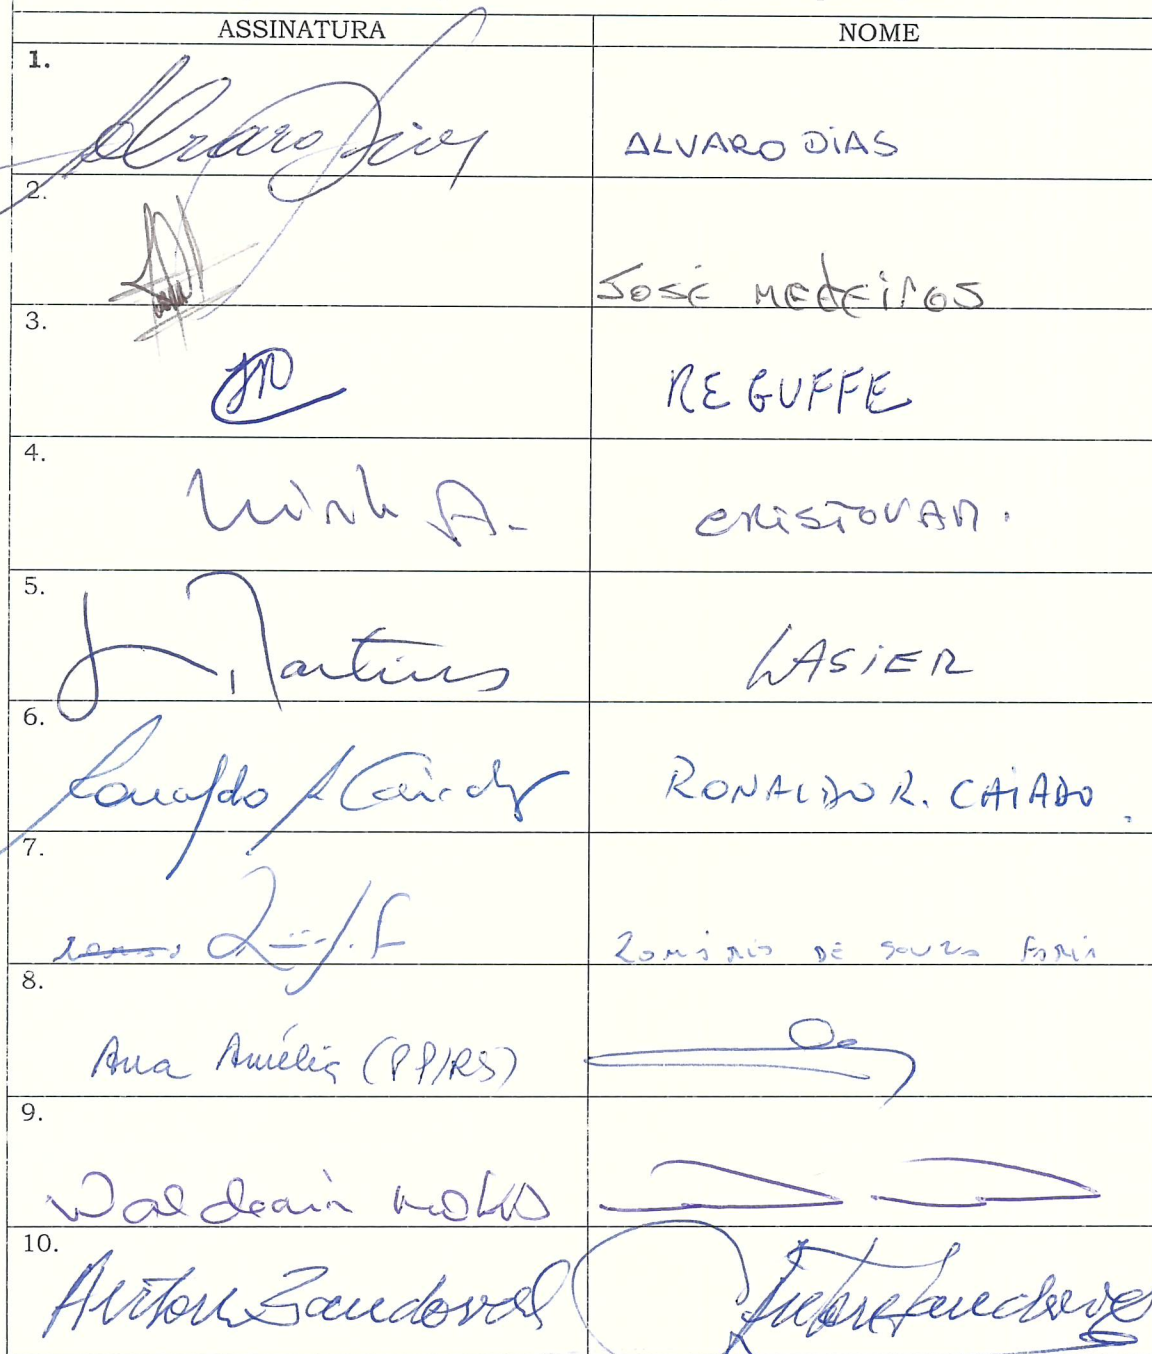 ASSINATURA NOME
1.
Alvaro Dias ALVARO DIAS
2.
JOSÉ MEDEIROS
3.
REGUFFE
4.
CRISTOVAM.
5.
L. Martins LASIER
6.
Ronaldo R Caiado RONALDO R. CAIADO.
7.
ROMÁRIO DE SOUZA FARIA
8.
Ana Amélia (PP/RS)
9.
Waldemir Moka
10.
Airton Sandoval Airton Sandoval